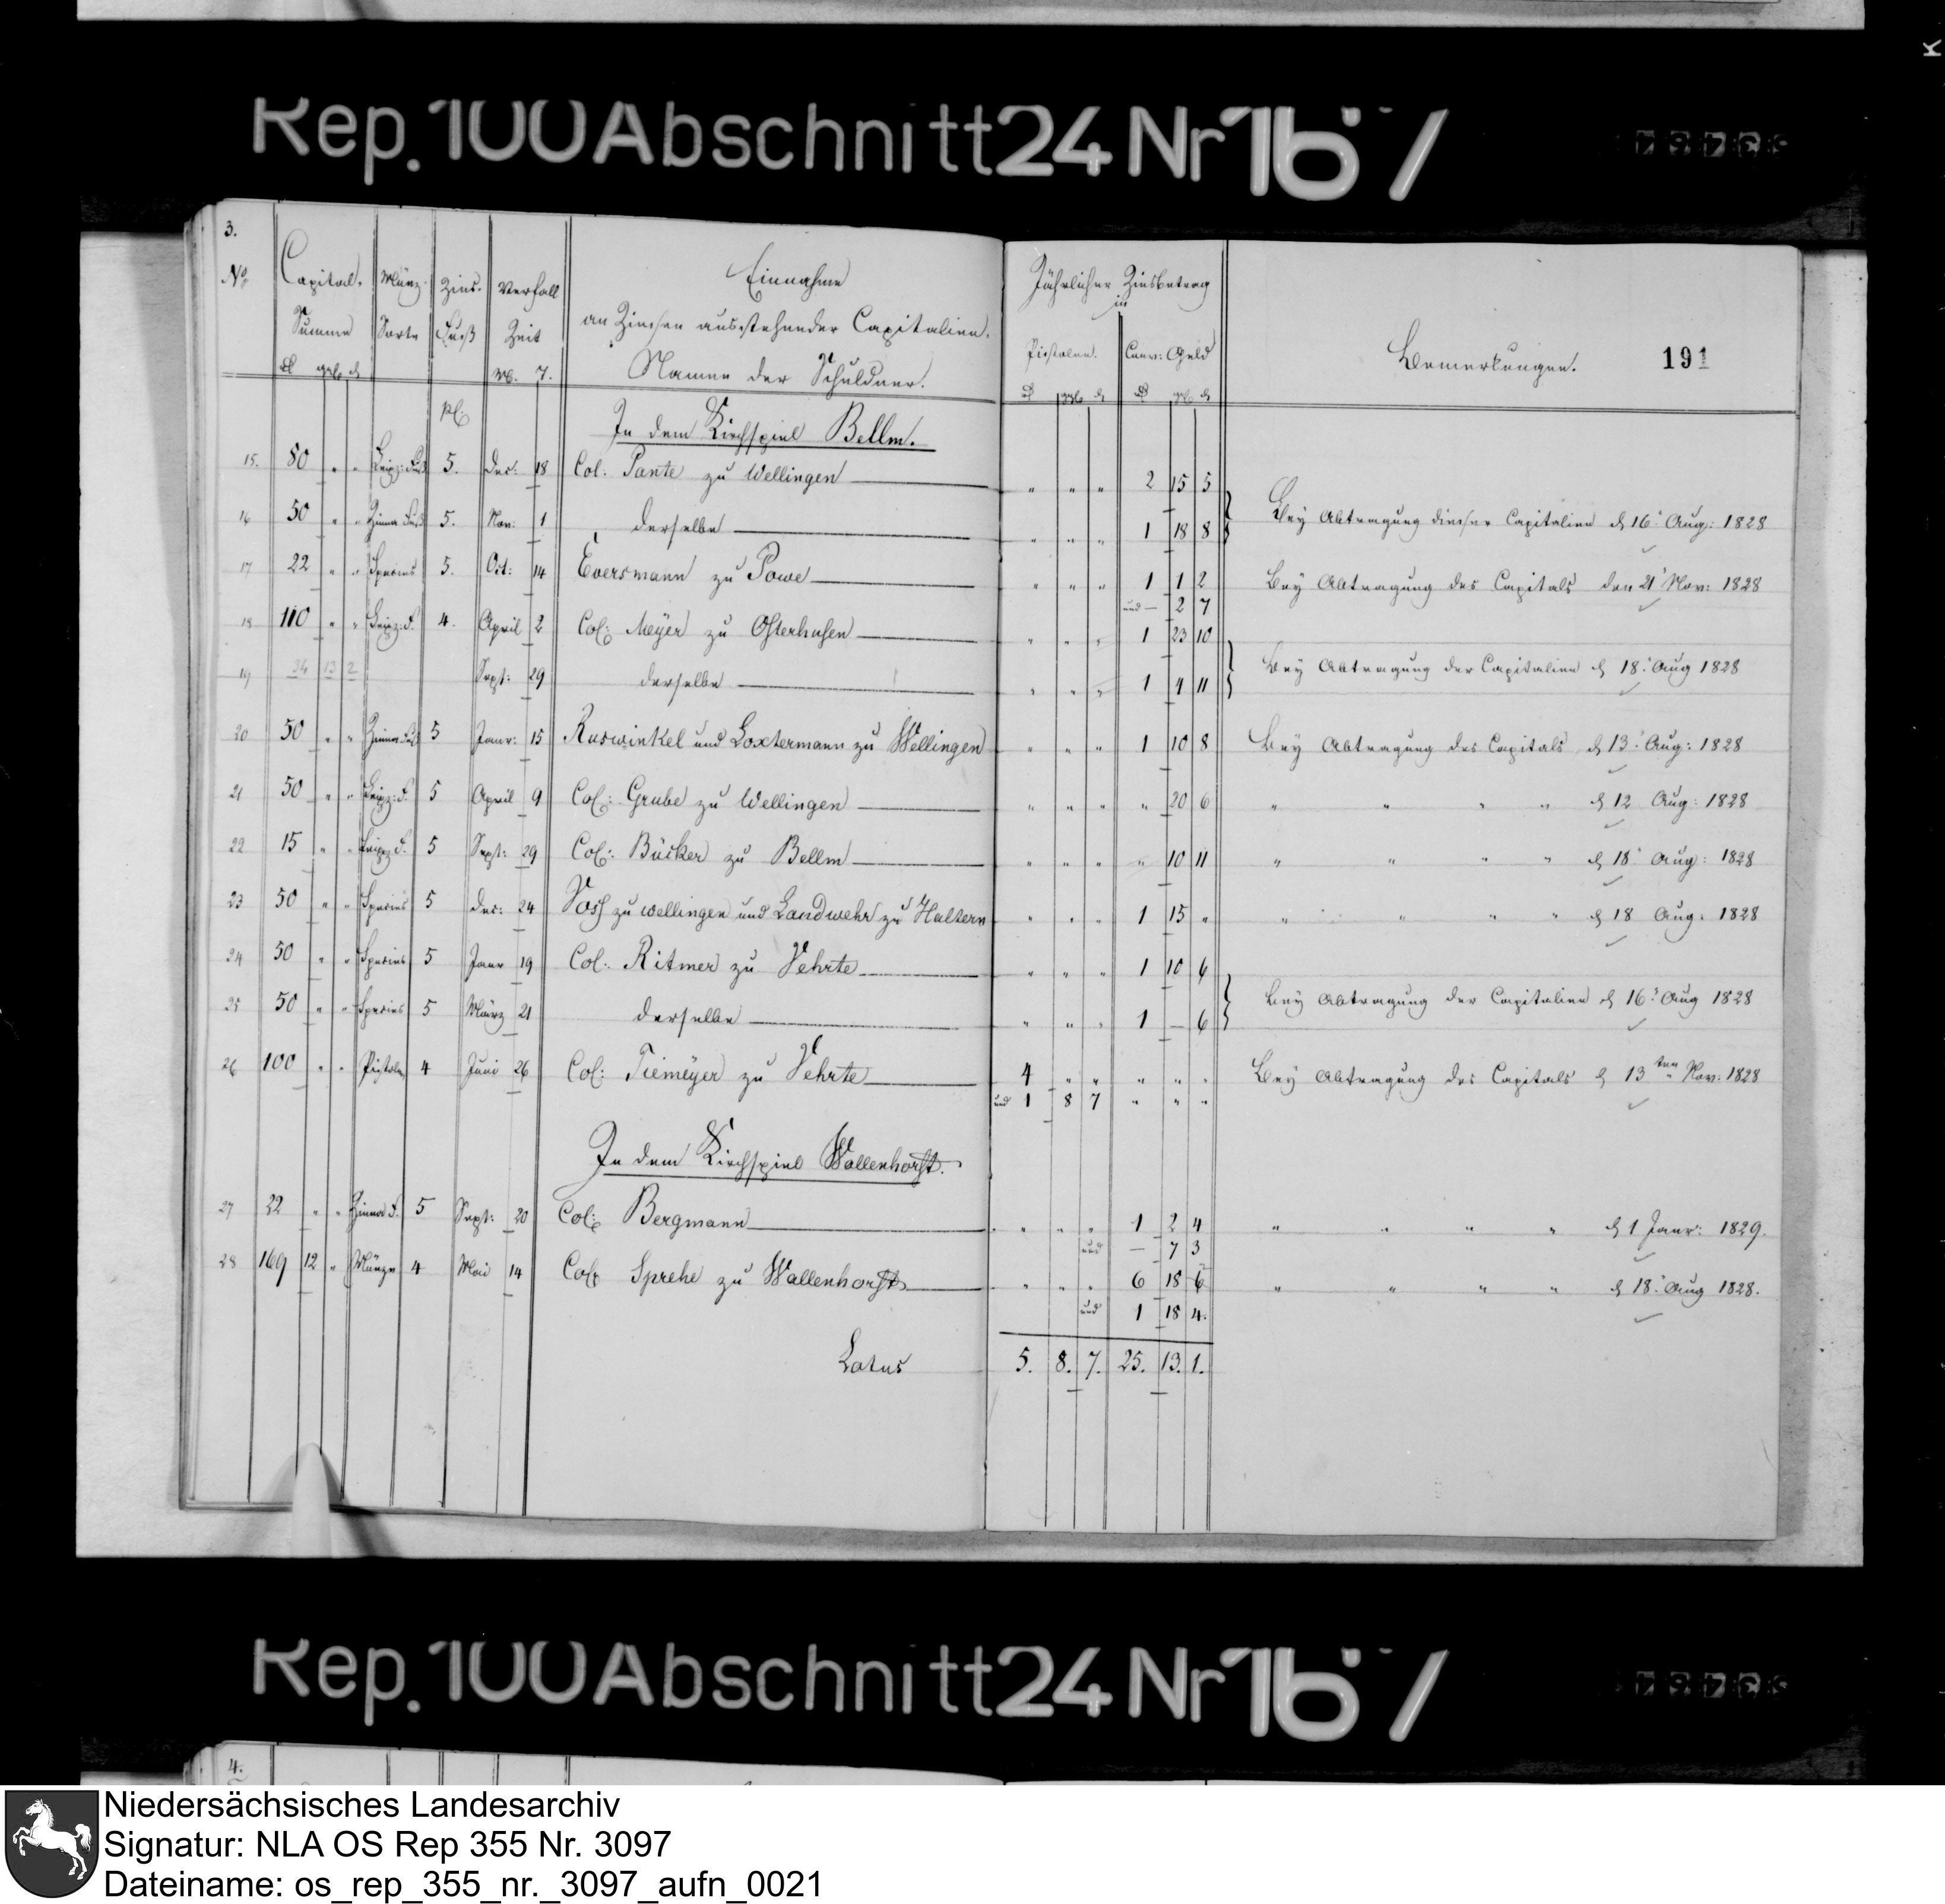 K
Rep. 100 Abschnitt 24 Nr 167
3.
No Capital- Münz- Zins- Verfall Einnahme Jährlicher Zinsbetrag
Summe Sorte Fuß Zeit an Zinsen ausstehender Capitalien. in
M. T. Namen der Schuldner. Pistolen. Conv: Geld Bemerkungen. 191
In dem Kirchspiel Bellm.
15. 80 " " Leipz: Fuß 5. Dec: 18 Col: Pante zu Wellingen " " " 2 15 5
16 50 " " Zinna Fuß 5. Nov: 1 derselbe " " " 1 18 8 Bey Abtragung dieser Capitalien d 16t Aug: 1828
17 22 " " Species 5. Oct: 14 Eversmann zu Powe " " " 1 1 2 Bey Abtragung des Capitals den 21t Nov: 1828
und — 2 7
18 110 " " Leipz: F. 4. April 2 Col: Meyer zu Osterhusen " " " 1 23 10
19 34 13 2 Sept: 29 derselbe " " " 1 4 11 Bey Abtragung der Capitalien d 18t Aug 1828
20 50 " " Zinna Fuß 5 Janr: 15 Ruswinkel und Loxtermann zu Wellingen " " " 1 10 8 Bey Abtragung des Capitals d 13t Aug: 1828
21 50 " " Leipz: F. 5 April 9 Col: Grube zu Wellingen " " " " 20 6 " " " " d 12 Aug: 1828
22 15 " " Leipz F. 5 Sept: 29 Col: Bücker zu Bellm " " " " 10 11 " " " " d 18t Aug: 1828
23 50 " " Species 5 Dec: 24 Voss zu Wellingen und Landwehr zu Haltern " " " 1 15 " " " " " d 18 Aug: 1828
24 50 " " Species 5 Janr 19 Col: Ritmer zu Vehrte " " " 1 10 6
25 50 " " Species 5 März 21 derselbe " " " 1 — 6 Bey Abtragung der Capitalien d 16t Aug 1828
26 100 " " Pistolen 4 Juni 26 Col: Tiemeyer zu Vehrte 4 " " " " " Bey Abtragung des Capitals d 13ten Nov: 1828
und 1 8 7 " " "
In dem Kirchspiel Wallenhorst.
27 22 " " Zinna F. 5 Sept: 20 Col: Bergmann " " " 1 2 4 " " " " d 1 Janr: 1829.
und — 7 3
28 169 12 " Münze 4 Mai 14 Col: Sprehe zu Wallenhorst " " " 6 18 6 " " " " d 18t Aug 1828.
und 1 18 4.
Latus 5. 8. 7. 25. 13. 1.
Rep. 100 Abschnitt 24 Nr 167
4.
Niedersächsisches Landesarchiv
Signatur: NLA OS Rep 355 Nr. 3097
Dateiname: os_rep_355_nr._3097_aufn_0021